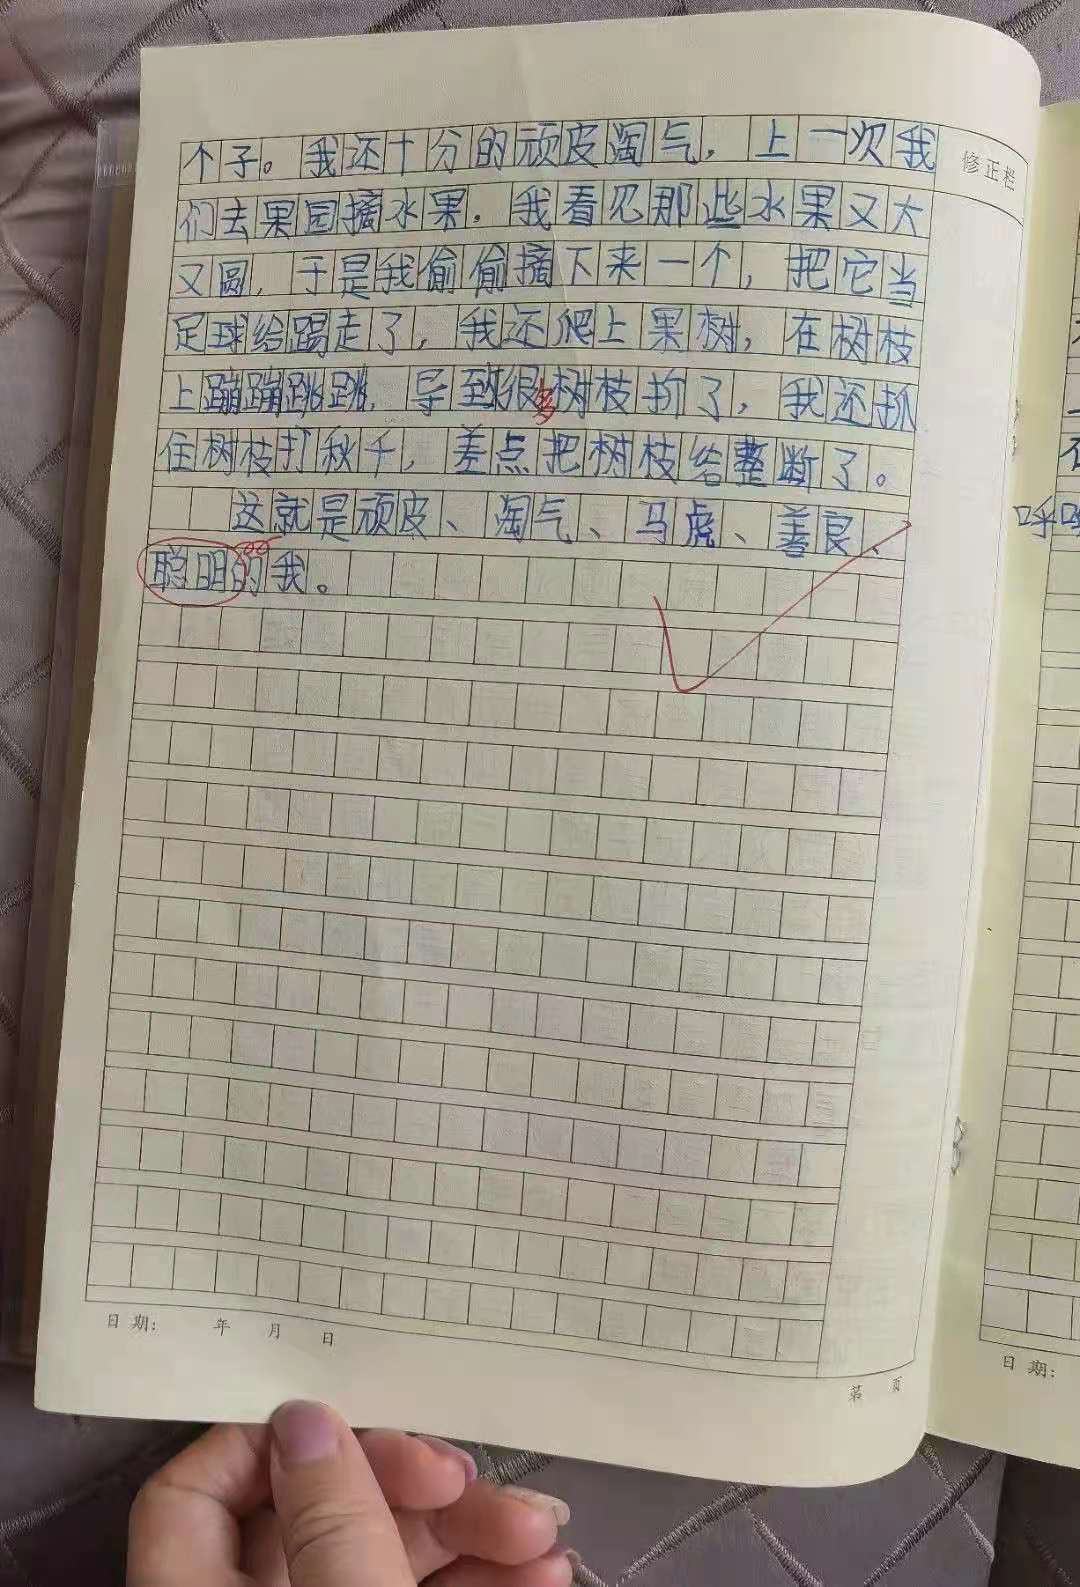 个子。我还十分的顽皮淘气，上一次我
修正栏
们去果园摘水果。我看见那些水果又大
又圆，于是我偷偷摘下来一个，把它当
足球给踢走了，我还爬上果树，在树枝
上蹦蹦跳跳，导致很多树枝折了，我还抓
住树枝打秋千，差点把树枝给整断了。
这就是顽皮、淘气、马虎、善良、
聪明的我。
日期： 年 月 日
第 页
呼
日期：